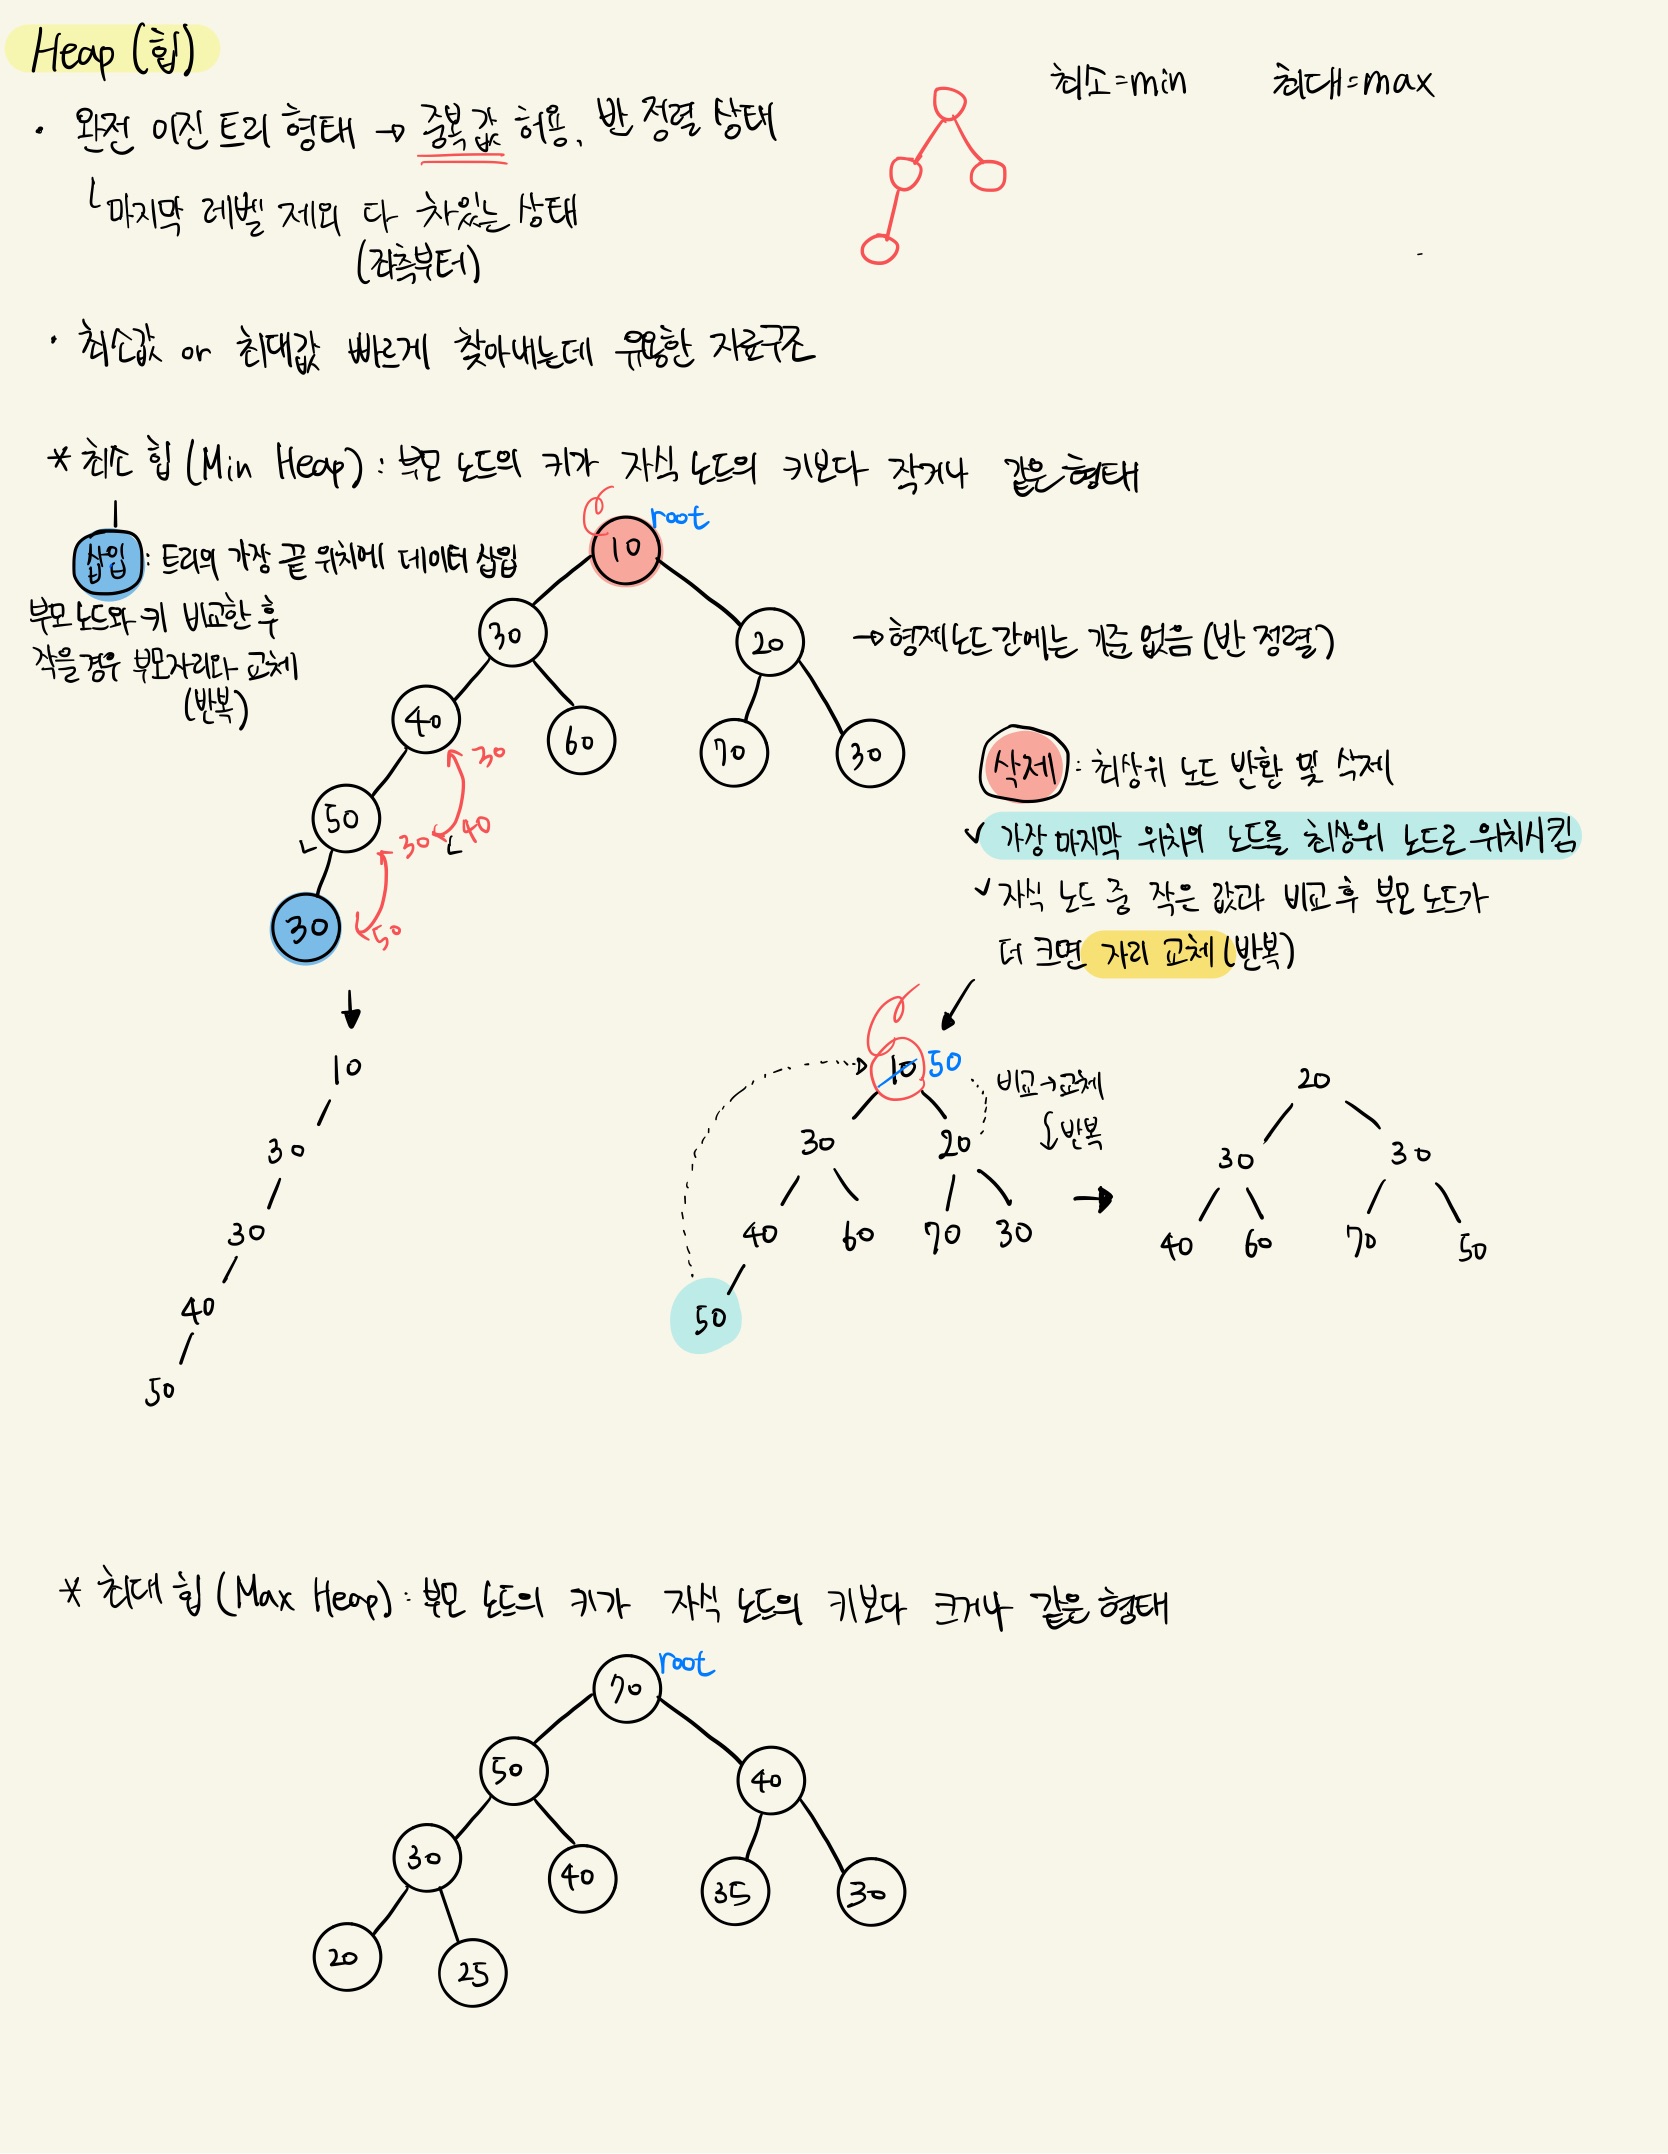 Heap (힙)
최소=min 최대=max
· 완전 이진 트리 형태 → 중복 값 허용, 반 정렬 상태
ㄴ마지막 레벨 제외 다 차있는 상태
(좌측부터)
· 최소값 or 최대값 빠르게 찾아내는데 유용한 자료구조
* 최소 힙 (Min Heap) : 부모 노드의 키가 자식 노드의 키보다 작거나 같은 형태
삽입 : 트리의 가장 끝 위치에 데이터 삽입
부모 노드와 키 비교한 후
작을 경우 부모자리와 교체
(반복)
root
10
30 20
→ 형제노드 간에는 기준 없음 (반 정렬)
40 60 70 30
30
50
30 40
30
50
삭제 : 최상위 노드 반환 및 삭제
✓ 가장 마지막 위치의 노드를 최상위 노드로 위치시킴
✓ 자식 노드 중 작은 값과 비교 후 부모 노드가
더 크면 자리 교체 (반복)
10
30
30
40
50
10 50
비교→교체
↓반복
30 20
40 60 70 30
50
→
20
30 30
40 60 70 50
* 최대 힙 (Max Heap) : 부모 노드의 키가 자식 노드의 키보다 크거나 같은 형태
root
70
50 40
30 40 35 30
20 25